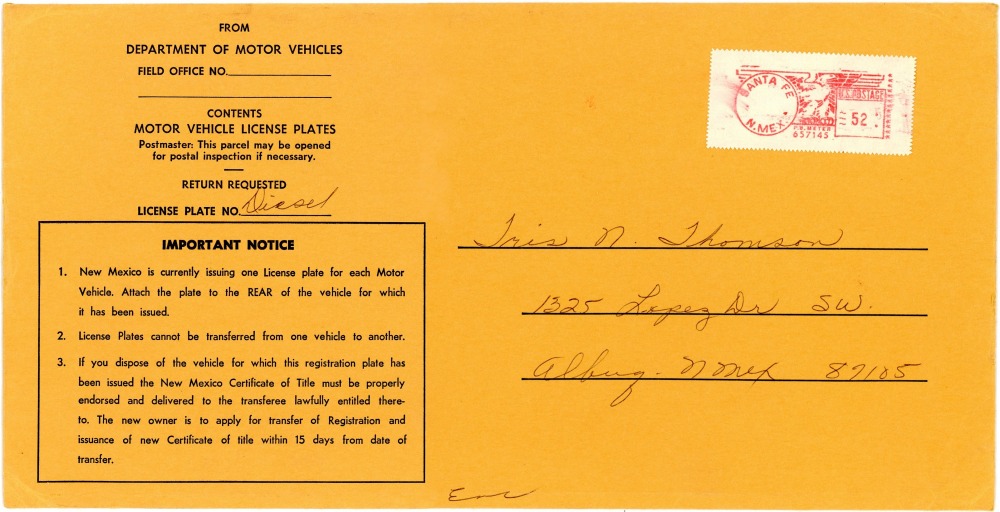 FROM
DEPARTMENT OF MOTOR VEHICLES
FIELD OFFICE NO.
CONTENTS
MOTOR VEHICLE LICENSE PLATES
Postmaster: This parcel may be opened
for postal inspection if necessary.
RETURN REQUESTED
LICENSE PLATE NO. Diesel
IMPORTANT NOTICE
1. New Mexico is currently issuing one License plate for each Motor
Vehicle. Attach the plate to the REAR of the vehicle for which
it has been issued.
2. License Plates cannot be transferred from one vehicle to another.
3. If you dispose of the vehicle for which this registration plate has
been issued the New Mexico Certificate of Title must be properly
endorsed and delivered to the transferee lawfully entitled there-
to. The new owner is to apply for transfer of Registration and
issuance of new Certificate of title within 15 days from date of
transfer.
SANTA FE
N.MEX.
U.S. POSTAGE
52
P.B. METER
657145
Iris N. Thomson
1325 Lopez Dr SW.
Albuq. N Mex 87105
Enc